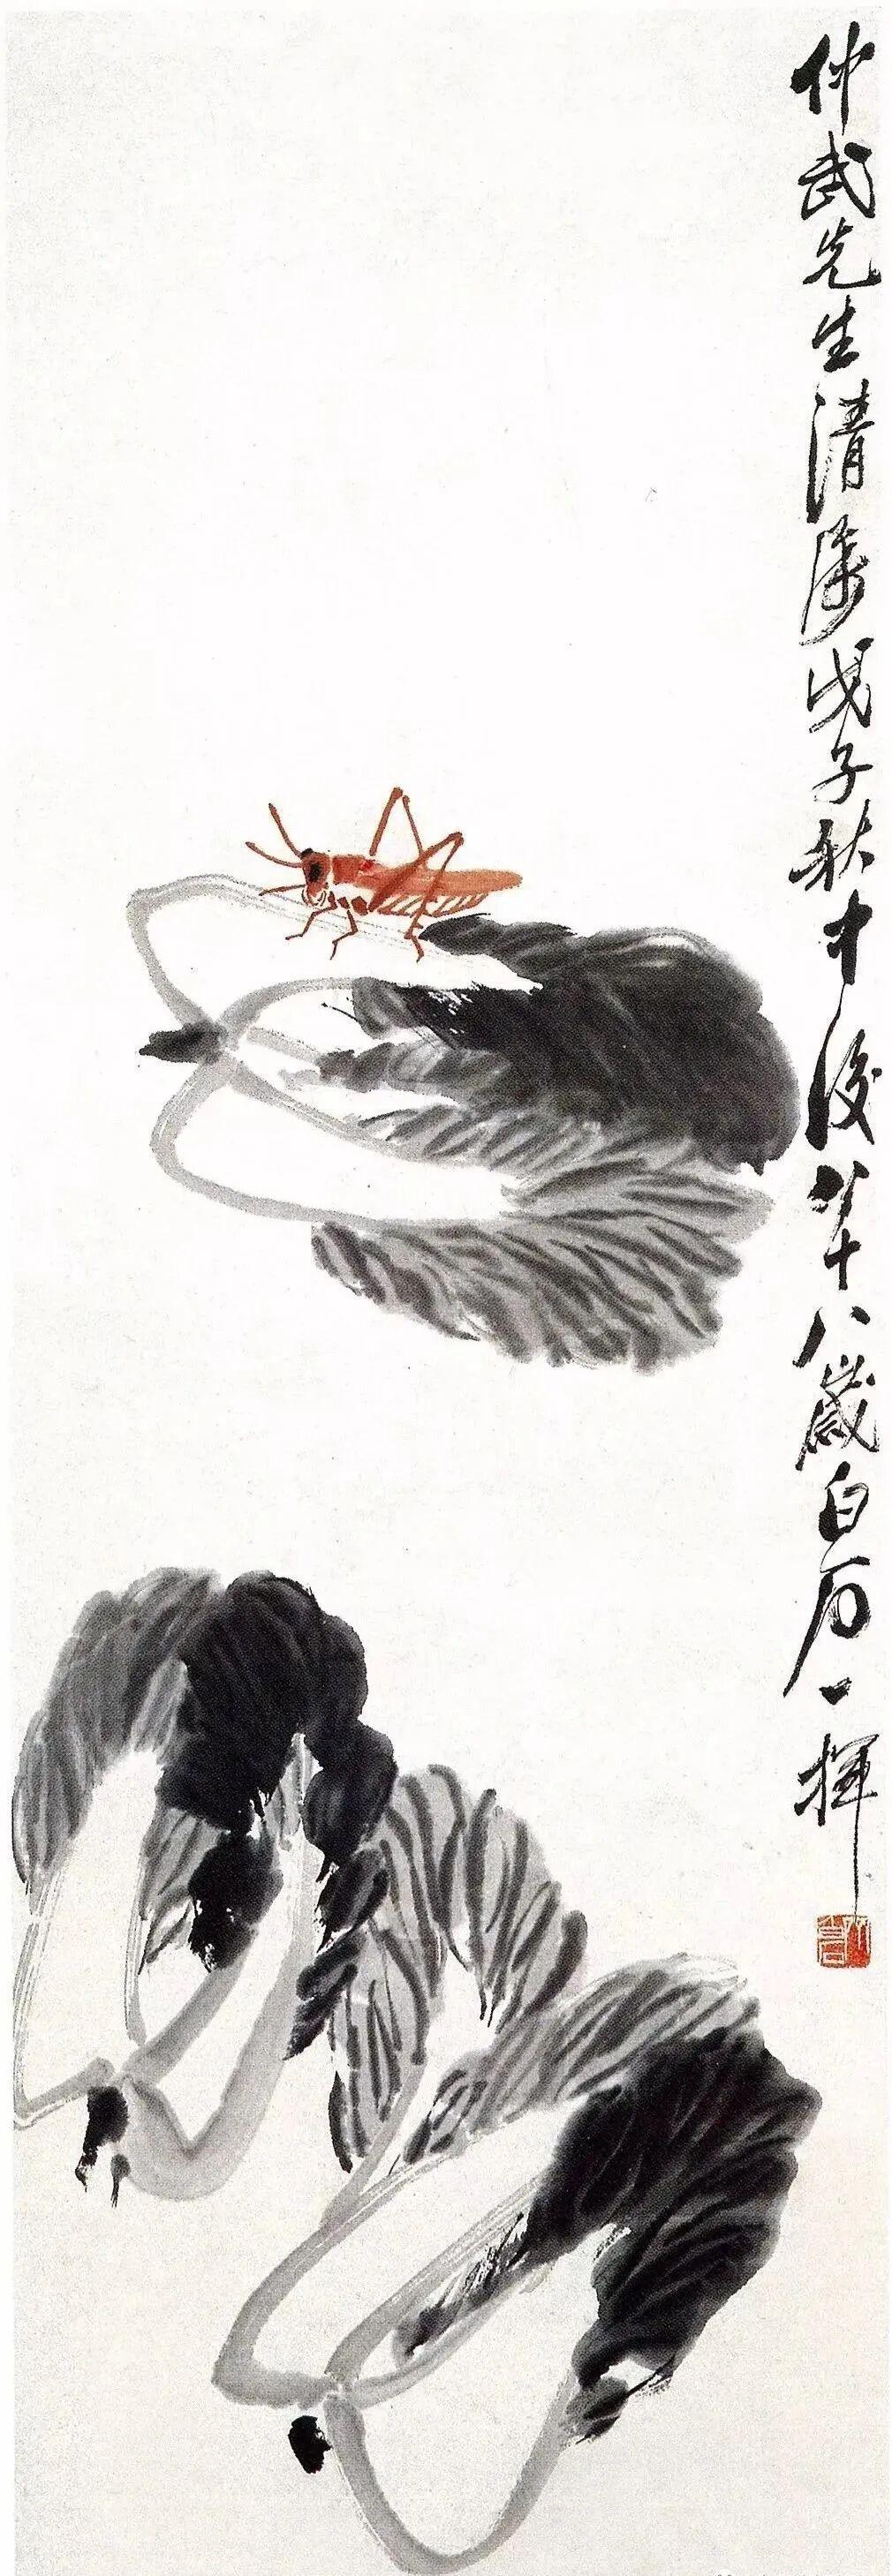 仲武先生清属戊子秋中後八十八歲白石一揮